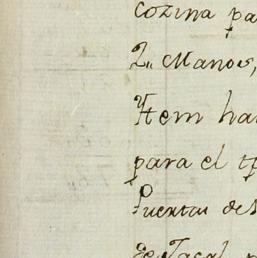 cozina pa
2,, Manos,
Ytem ha
para el
Puertas de
de Jacal